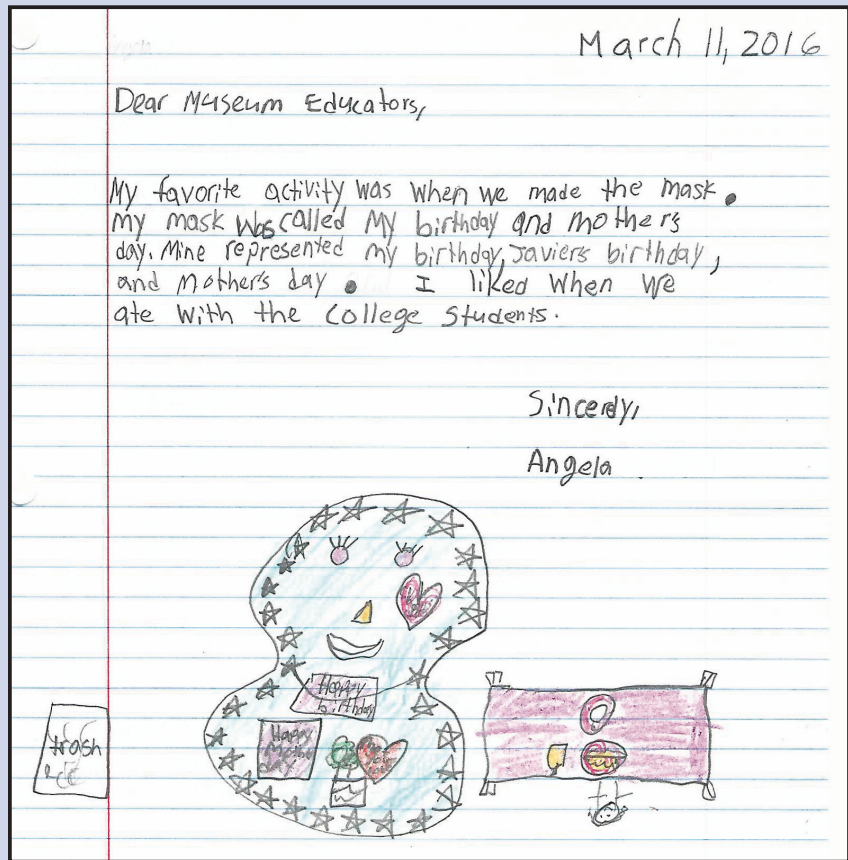 March 11, 2016
Dear Museum Educators,
My favorite activity was when we made the mask.
my mask was called My birthday and mothers
day. Mine represented my birthday, Javiers birthday,
and Mother's day. I liked when we
ate with the College Students.
Sincerely,
Angela
Happy
birthday
Happy
Mothe
DAY
trash